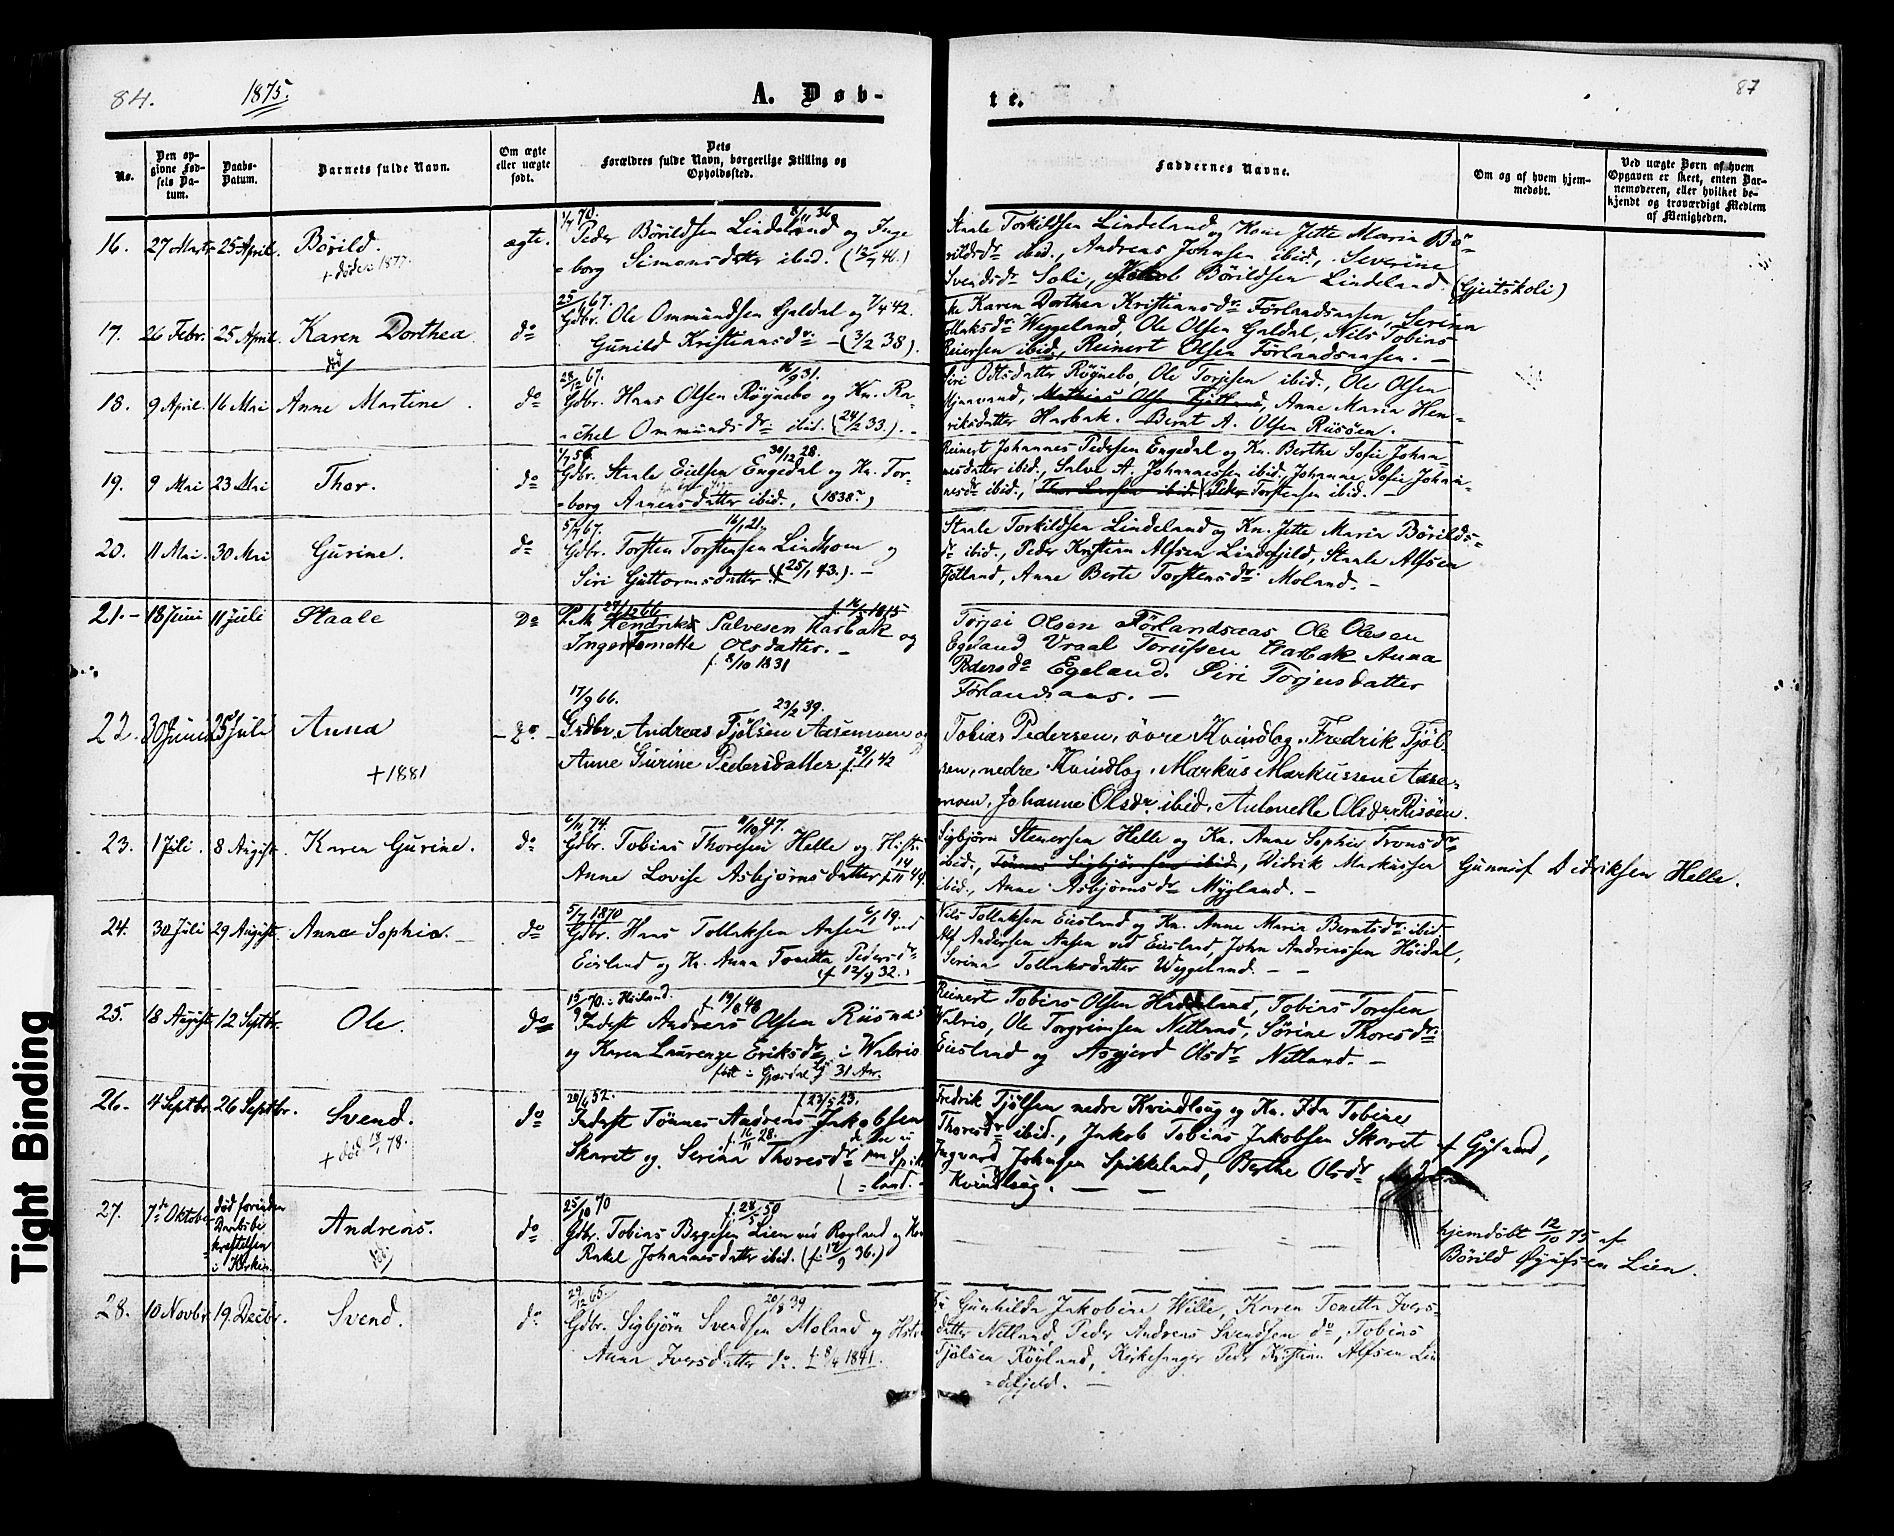 84.
1875.
A. Døb-
te.
87
No.
Den op-
givne Fød-
sels Da-
tum.
Daabs-
Datum.
Barnets fulde Navn.
Om ægte
eller uægte
født.
Dets
Forældres fulde Navn, borgerlige Stilling og
Opholdssted.
Faddernes Navne.
Om og af hvem hjem-
medøbt.
Ved uægte Børn af hvem
Opgaven er skeet, enten Bar-
nemoderen, eller hvilket be-
kjendt og troværdigt Medlem
af Menigheden.
16. 27 Marts 25 April. Børild. ægte.
+ døde 1877.
Peder Børildsen Lindeland og Inge
=borg Simonsdatter ibid.
Staale Torkildsen Lindeland og Kone Jette Maria Bø-
rildsdr ibid., Andreas Johnsen ibid., Severine
Svendsdr Soli, Jakob Børildsen Lindeland (Gjeitskoli)
17. 26 Febr. 25 April. Karen Dorthea do
25/ 67.
Gdbr. Ole Ommundsen Galdal og 7/4 42.
Gunild Kristiansdr. - (3/2 38).
Karen Dorthea Kristiansdr. Førlandsaasen, Serina
Tollaksdr. Weggeland, Ole Olsen Galdal, Nils Tobias
Reiersen ibid, Reinert Olsen Førlandsaasen. -
18. 9 April. 16 Mai Anne Martine. do
28/12 67. 16/9 31.
Gdbr. Hans Olsen Røynebo og Kn. Ra-
=chel Ommundsdr. ibid. (24/2 33.). -
Siri Oddsdatter Røynebo, Ole Torjesen ibid., Ole Olsen
Mathias Olsen Fjotland, Anne Maria Hen-
riksdatter Harbak. Bernt A. Olsen Risøen.
19. 9 Mai 23 Mai Thor. do
1/7 56. 30/12 28.
Gdbr. Staale Eielsen Engedal og Kn. Tor-
=borg Aanensdatter ibid., (1838)
Reinert Johannes Pedersen Engedal og Kn. Berthe Sofie Johan-
nesdatter ibid., Salve A. Johannessen ibid, Johanne Sofie Johan-
nesdr ibid., Thor Larsen ibid Peder Torstensen ibid. -
20. 11 Mai. 30 Mai Gurine. do
5/ 67. 16/1 21.
Gdbr. Torsten Torstensen Lindhom og
Siri Guttormsdatter. (25/1 43.). -
Staale Torkildsen Lindeland og Kn. Jette Maria Børilds-
dr ibid., Peder Kristian Alfsen Lindefjeld, Staale Alfsen
Fjotland, Anne Berte Torstensdr. Moland. -
21. - 18 Juni 11 Juli Staale Do
Hendrik Salvesen Harbak og
Inger Tomette Olsdatter. -
f. 8/10 1831
Torjei Olsen Førlandsaas Ole Olesen
Egeland Vraal Torjussen Harbak Anna
Pedersdr Egeland. Siri Torjusdatter
Førlandsaas. -
22. 30 Juni 25 Juli Anna - Do -
+ 1881
17/9 66. 23/2 39.
Grdbr. Andreas Fjølsen Aasenmoen og
Anne Gurine Pedersdatter f. 29/1 42
Tobias Pedersen, øvre Kvindlog. Fredrik Fjøl-
sen, nedre Kvindlog. Markus Markussen Aase-
moen. Johanne Olsdr. ibid. Antonelle Olsdr Risøen.
23. 1 Juli. 8 August. Karen Gurine. do
74. 11/10 47.
Gdbr. Tobias Thoresen Helle og Hustru
Anne Lovise Asbjørnsdatter f. 14/11 49.
Sigbjørn Stenersen Helle og Kn. Anne Sophie Tronsdr
ibid., Tønnes Sigbjørnsen ibid, Didrik Markussen
ibid., Anne Asbjørnsdr Mygland. -
Gunnuf Didriksen Helle.
24. 30 Juli 29 August Anna Sophia. do
5/7 1870 6/1 19.
Gdbr. Hans Tollaksen Aasen ved
Eiesland og Kn. Anna Tonetta Pedersdr
(f. 12/9 32.)
Nils Tollaksen Eiesland og Kn. Anne Maria Berntsdr. ibid
Alf Andersen Aasen ved Eiesland, John Andreassen Høidal,
Serina Tollaksdatter Weggeland. - -
25. 18 August 12 Septbr. Ole. do
15/9 70. i Høiland. f. 19/8 48
Inderst Andreas Olsen Risnæs
og Karen Laurenze Eriksdr i Walrio
født i Gjæsdal 31 Aar.
Reinert Tobias Olsen Haddeland, Tobias Toresen
Walrio, Ole Torgrimsen Netland, Sørine Thoresdr.
Eiesland og Asgjerd Olsdr Netland. -
26. 4 Septbr. 26 Septbr. Svend. do
+ død 18/1 78.
20/6 52. f. 23/5 23.
Inderst Tønnes Andreas Jakobsen
Skaret og Serina Thoresdr
f. 16/11 28.
Fredrik Fjølsen nedre Kvindlaug og Kn. Ida Tobine
Thoresdr ibid., Jakob Tobias Jakobsen Skaret
Ingvard Johnsen Spikkeland, Berthe Olsdr
Kvindlaug. - -
27. 7de Oktober død forinden
Daabsbe
kræftelsen
i Kirken.
Andreas. do
25/10 70 f. 28/5 50
Gdbr. Tobias Børgesen Lien ved Røyland og Kn
Rakel Johannesdatter ibid. (f. 14/9 36.)
hjemdøbt 12/10 75 af
Børild Øyufsen Lien.
28. 10 Novbr. 19. Decbr. Svend. do
29/12 65. 20/8 39
Gdbr. Sigbjørn Svendsen Moland og Hstr
Anna Iversdatter do. f. 8/4 1841.
Gunhilda Jakobine Wille, Karen Tonetta Ivers-
datter Netland, Peder Andreas Svendsen do, Tobias
Fjølsen Røyland, Kirkesanger Peder Kristian Alfsen Lin
=defjeld. -
Tight Binding